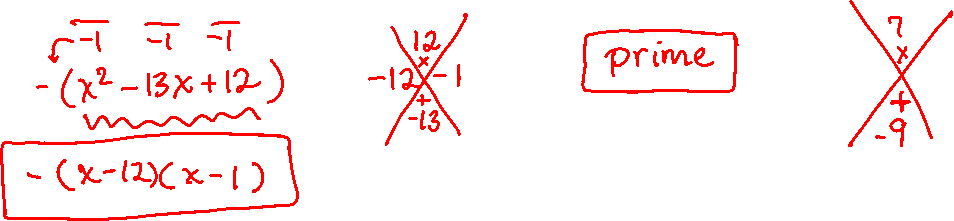 -1 -1 -1
-(x² -13x+12)
-(x-12)(x-1)
12
×
-12 -1
+
-13
prime
7
×
+
-9